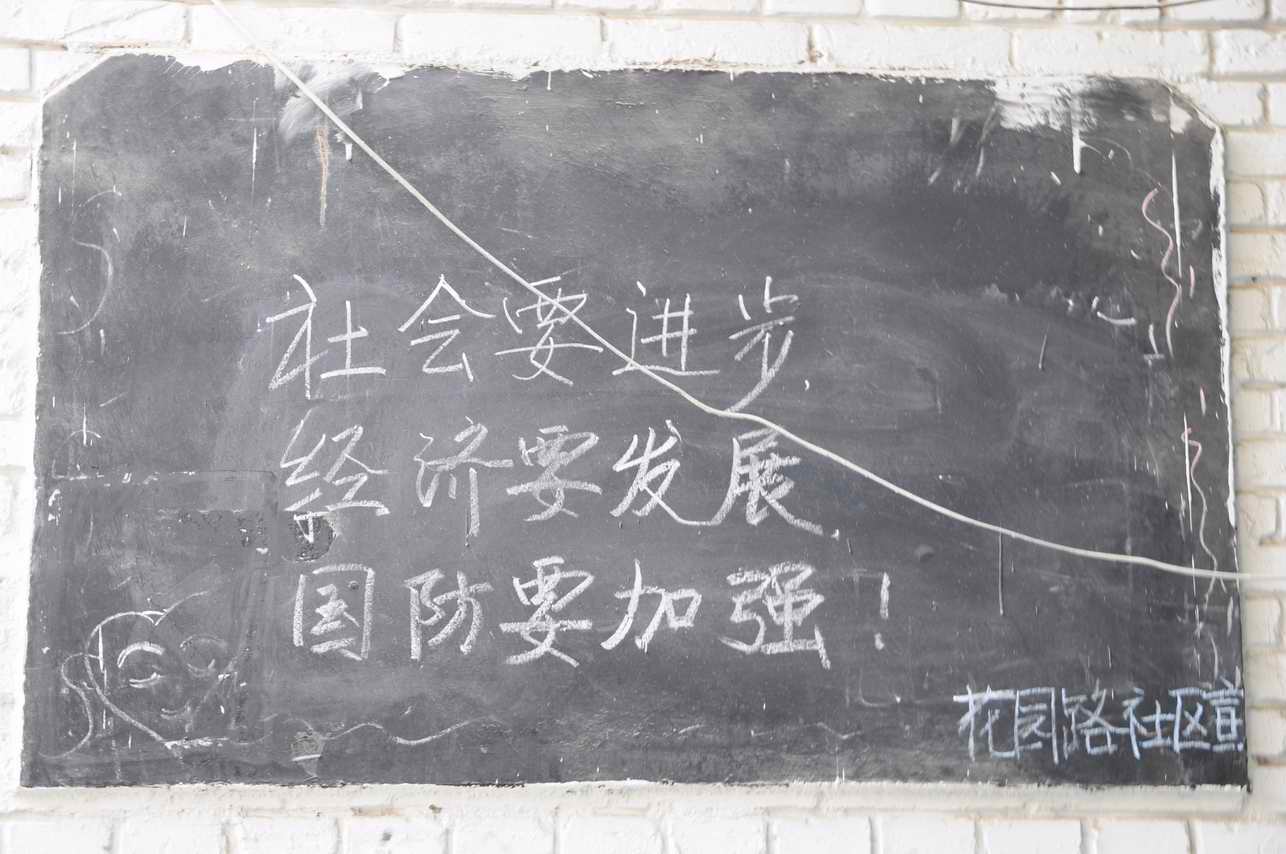 社会要进步
经济要发展
国防要加强！
花园路社区宣